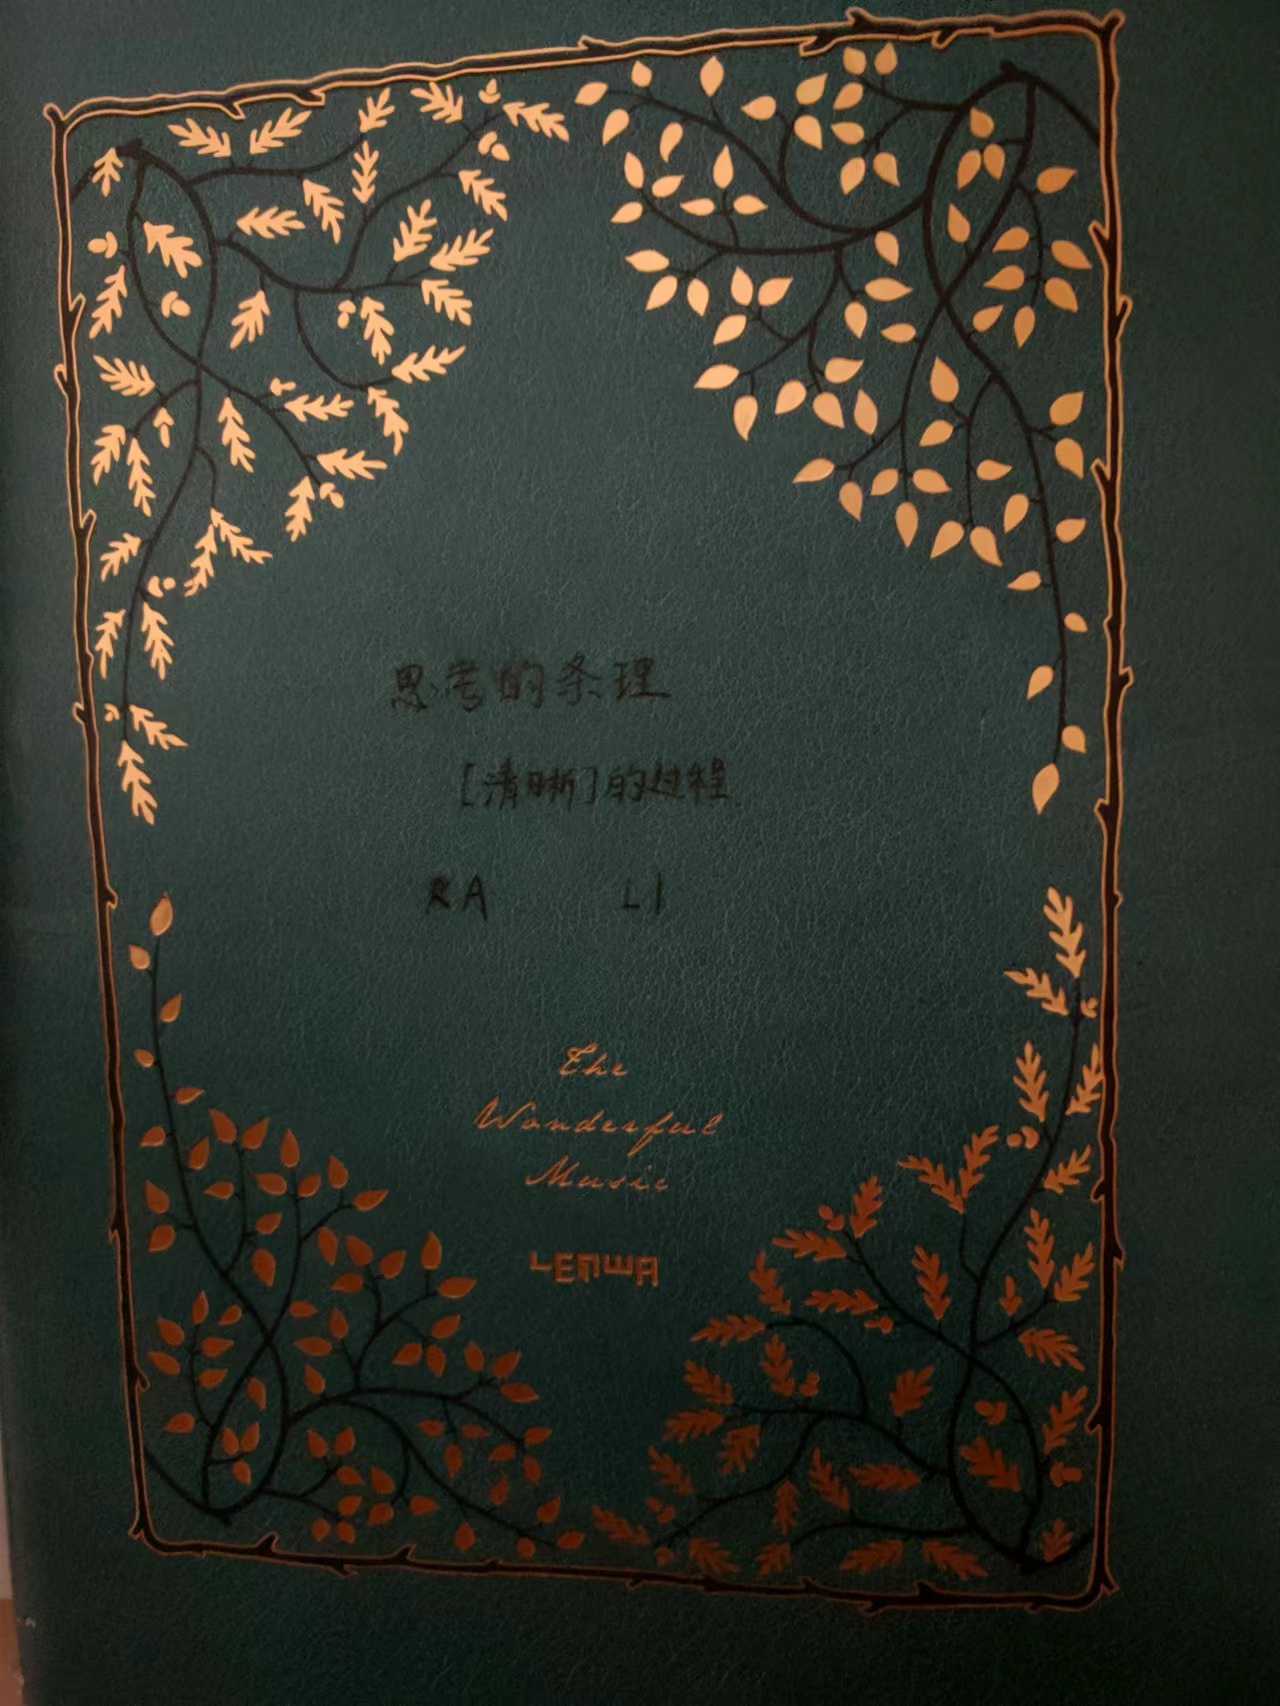 思考的条理
[清晰]的过程
RA LI
The
Wonderful
Music
LENWA